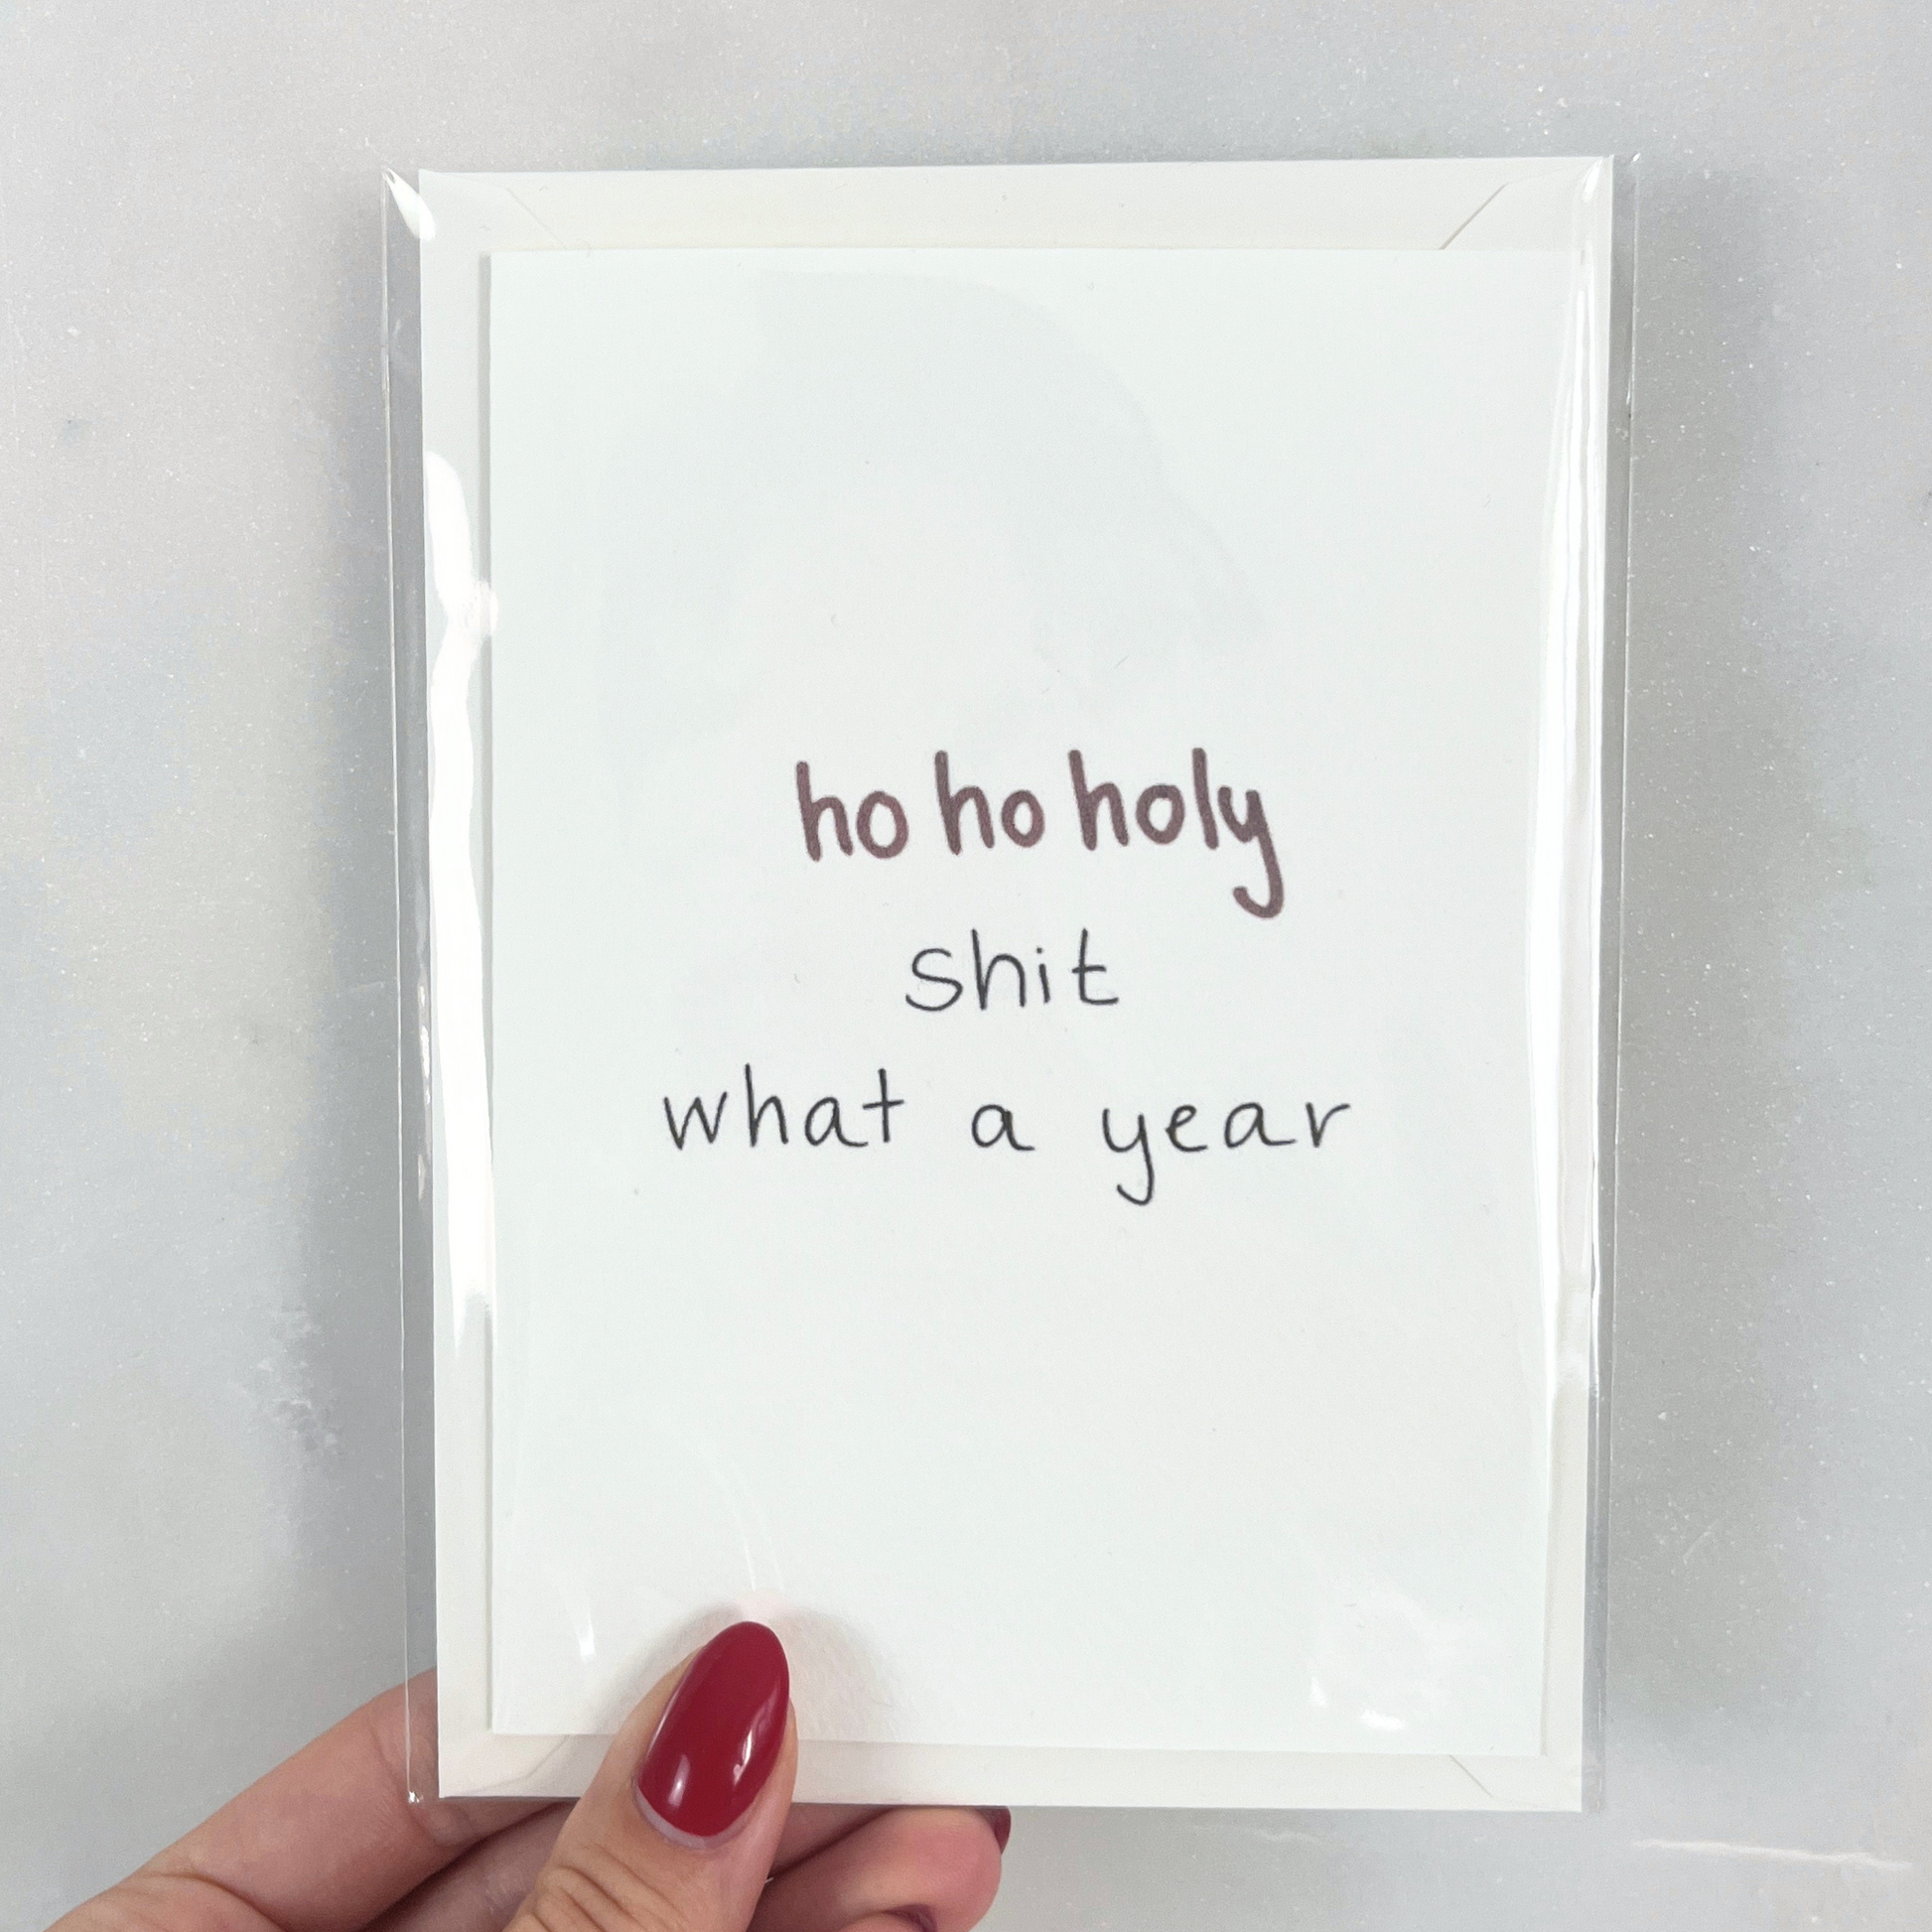 ho ho holy
shit
what a year